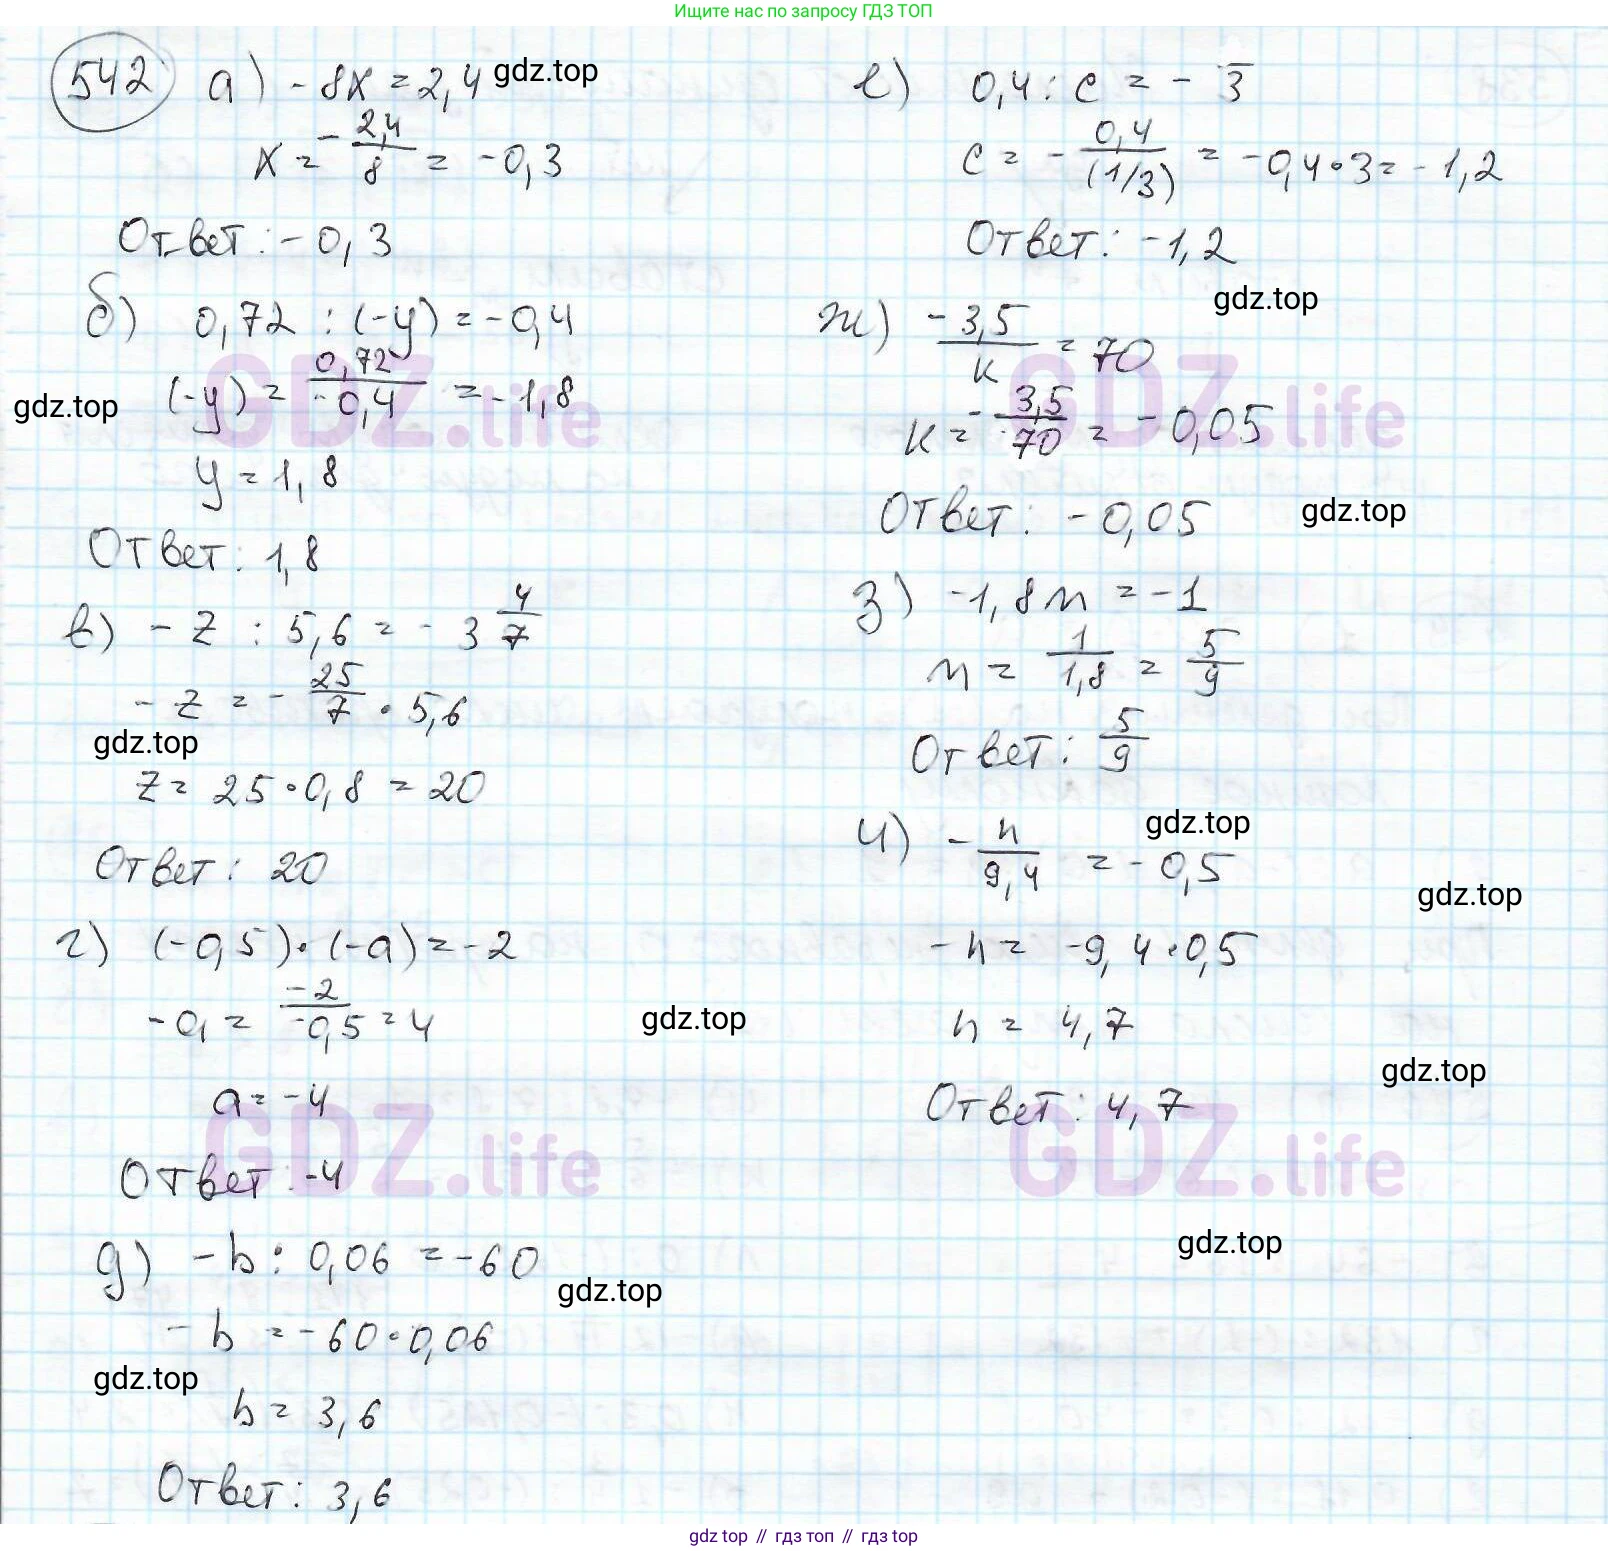 Ищите нас по запросу ГДЗ ТОП
542 а) -8x = 2,4 gdz.top
x = -2,4/8 = -0,3
Ответ: -0,3
б) 0,72 : (-y) = -0,4
gdz.top (-y) = 0,72/-0,4 = -1,8
GDZ.life
y = 1,8
Ответ: 1,8
в) -z : 5,6 = -3 4/7
-z = -25/7 · 5,6
gdz.top
z = 25 · 0,8 = 20
Ответ: 20
г) (-0,5) · (-a) = -2
-a = -2/-0,5 = 4 gdz.top
a = -4
GDZ.life
Ответ: -4
д) -b : 0,06 = -60
gdz.top
-b = -60 · 0,06
gdz.top
b = 3,6
Ответ: 3,6
е) 0,4 : c = - 3
c = - 0,4/(1/3) = -0,4 · 3 = -1,2
Ответ: -1,2
gdz.top
ж) -3,5/к = 70
GDZ.life
к = -3,5/70 = -0,05
Ответ: -0,05 gdz.top
з) -1,8m = -1
m = 1/1,8 = 5/9
Ответ: 5/9
gdz.top
и) -n/9,4 = -0,5
gdz.top
-n = -9,4 · 0,5
n = 4,7
gdz.top
Ответ: 4,7
GDZ.life
gdz.top
gdz top // гдз топ // гдз top